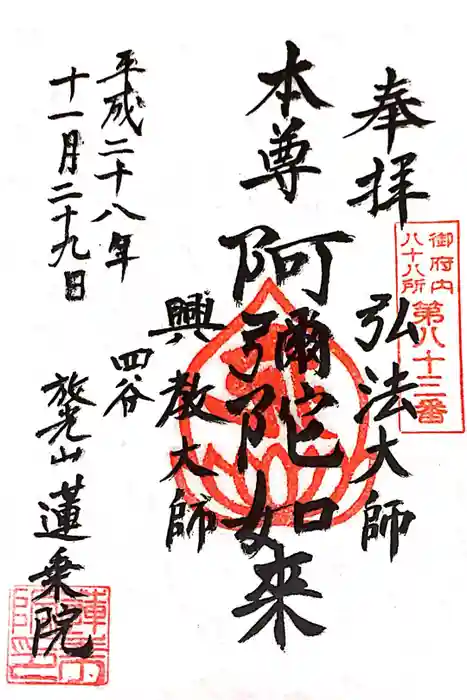 奉拝
御府内
八十八所
第八十三番
弘法大師
本尊
阿彌陀如来
興教大師
平成二十八年
十一月二十九日
四谷
放光山
蓮乗院